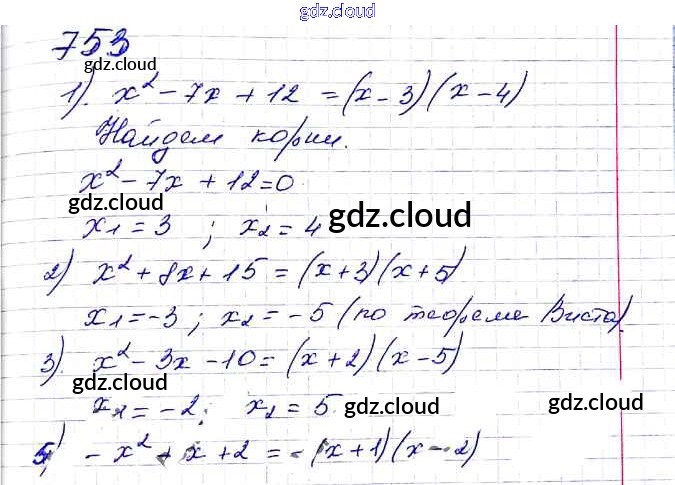 gdz.cloud
753
gdz.cloud
1). x² - 7x + 12 = (x - 3)(x - 4)
Найдем корни.
x² - 7x + 12 = 0
gdz.cloud
x1 = 3 ; x2 = 4 gdz.cloud
2) x² + 8x + 15 = (x + 3)(x + 5)
x1 = -3 ; x2 = -5 (по теореме Виета)
3). x² - 3x - 10 = (x + 2)(x - 5)
gdz.cloud
x1 = -2; x2 = 5 gdz.cloud gdz.cloud
5) - x² + x + 2 = - (x + 1)(x - 2)